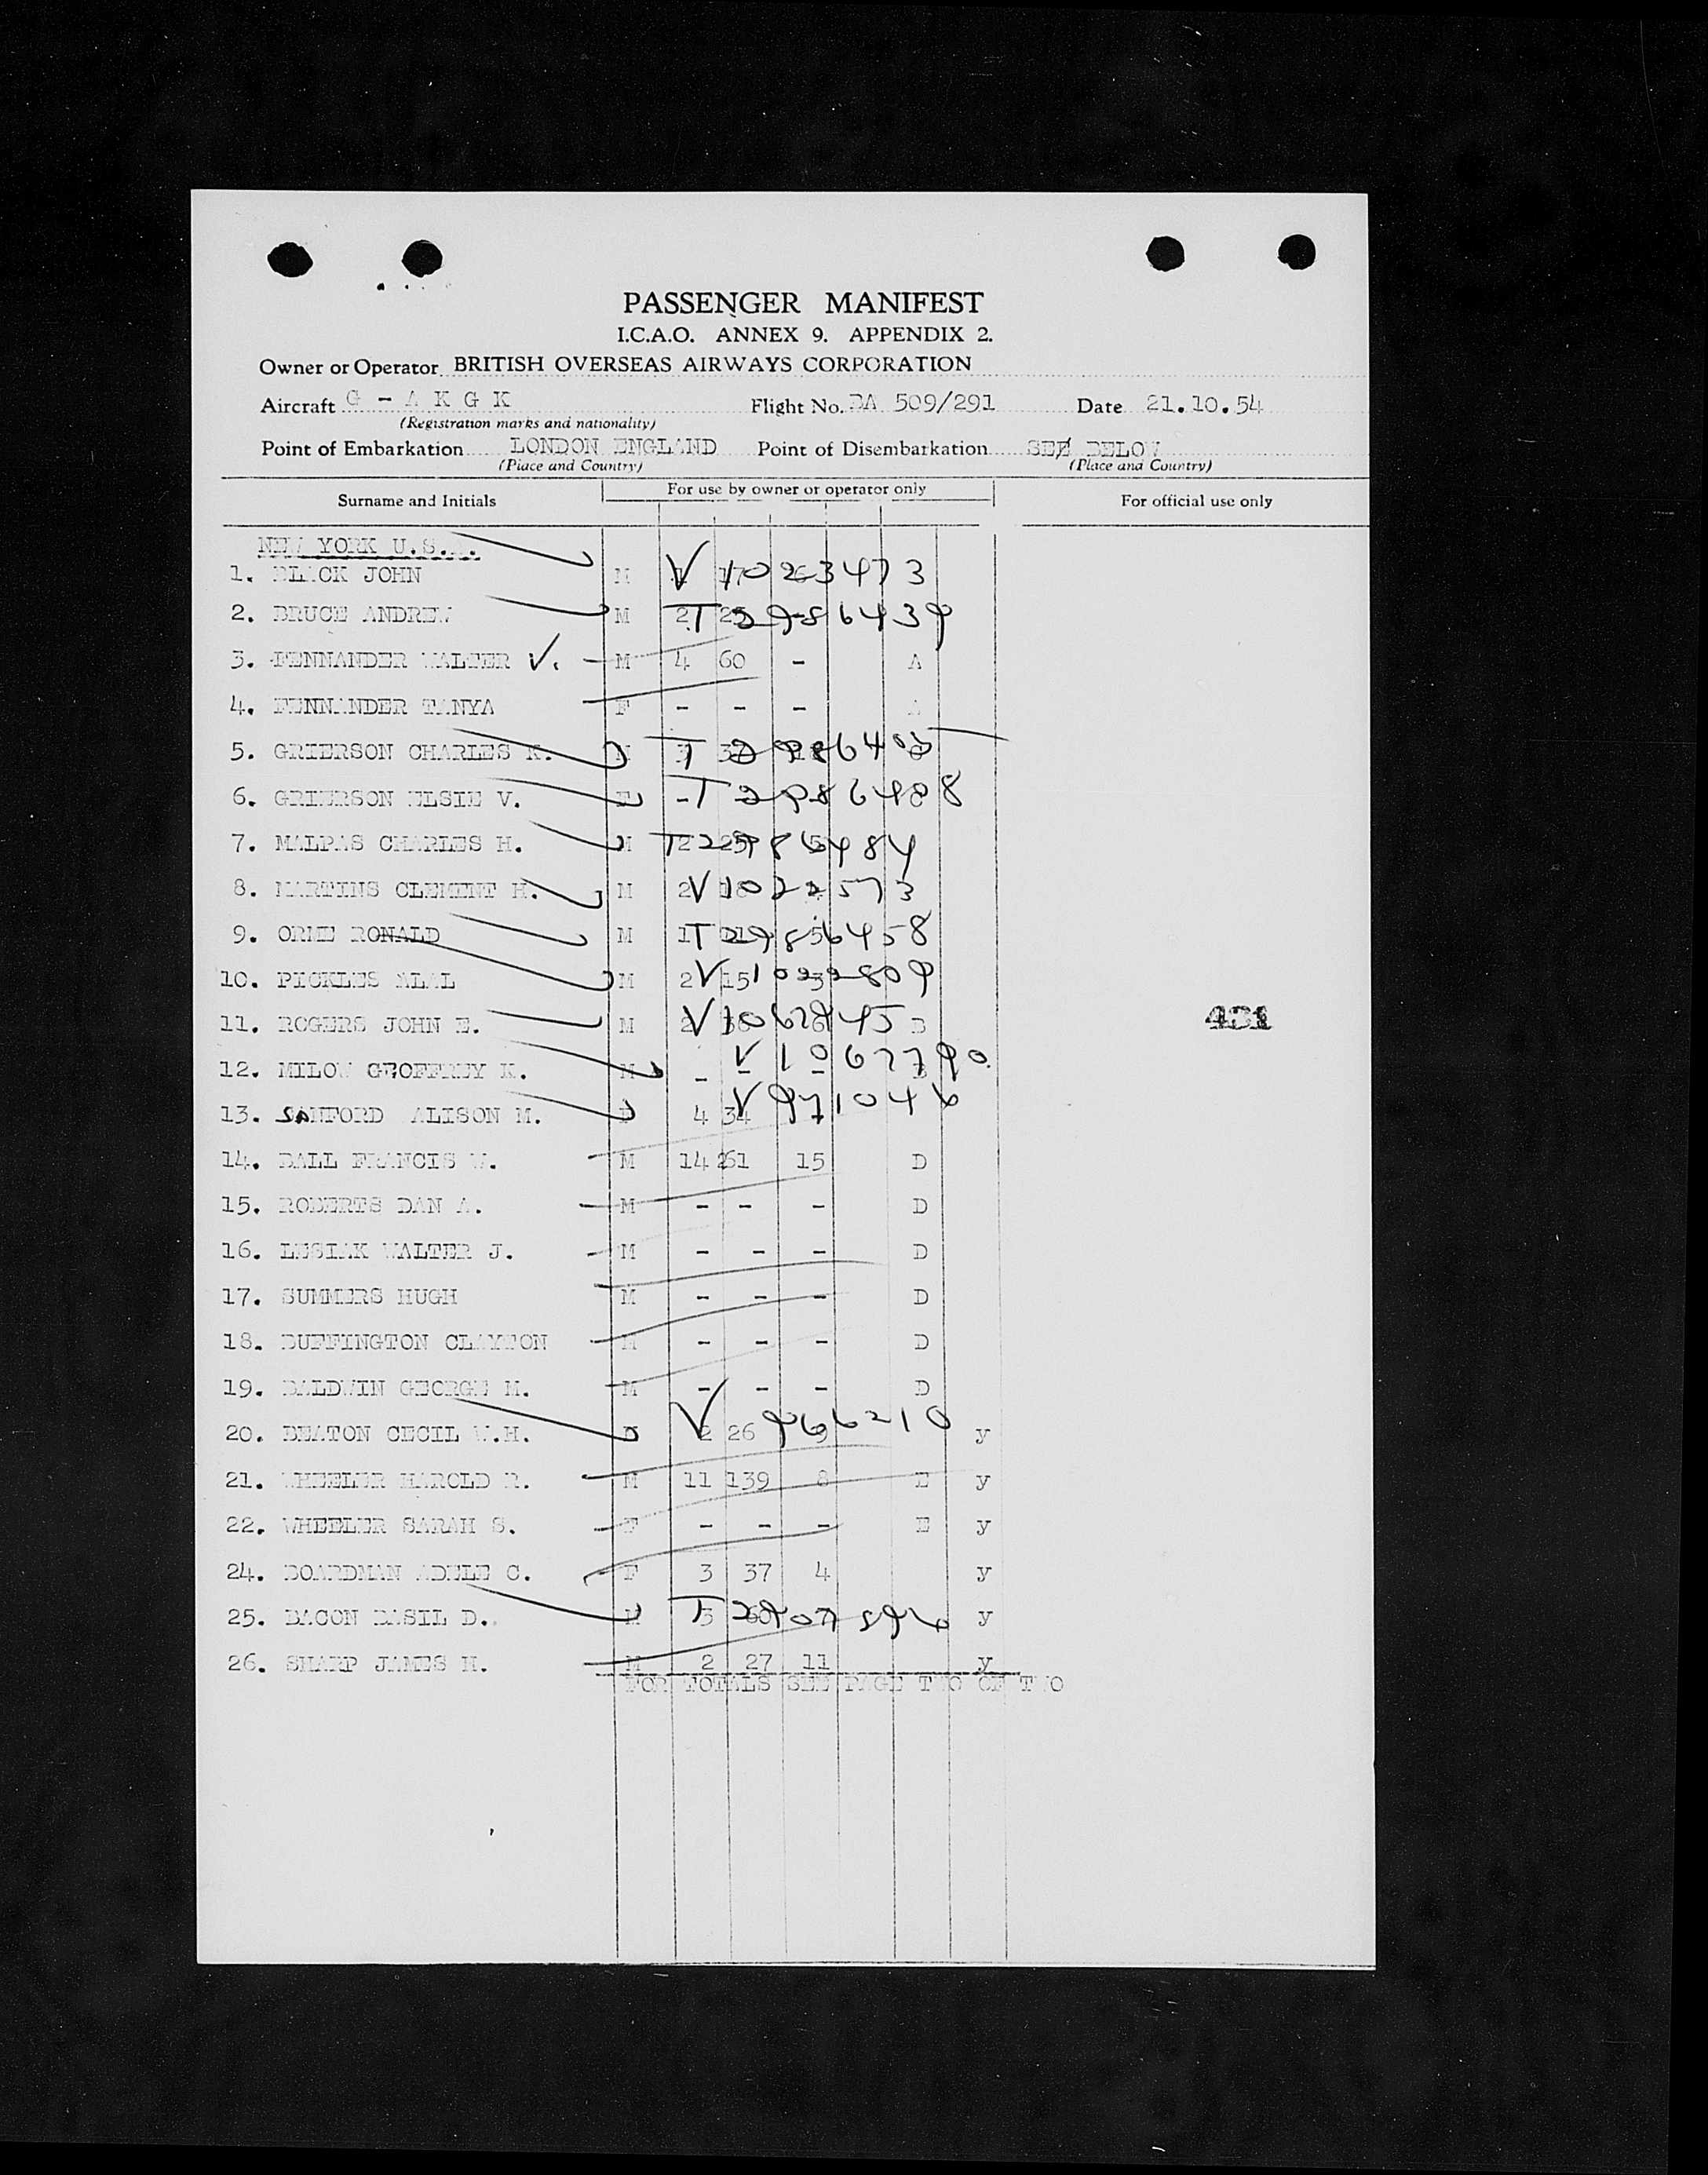 PASSENGER MANIFEST
I.C.A.O. ANNEX 9. APPENDIX 2.
Owner or Operator BRITISH OVERSEAS AIRWAYS CORPORATION
Aircraft G - A K G K Flight No. BA 509/291 Date 21.10.54
(Registration marks and nationality)
Point of Embarkation LONDON ENGLAND Point of Disembarkation SEE BELOW
(Place and Country) (Place and Country)
Surname and Initials For use by owner or operator only For official use only
NEW YORK U.S.A.
1. BLACK JOHN M V 10263473
2. BRUCE ANDREW M 2 T 2986439
3. FENNANDER WALTER V. M 4 60 - A
4. FENNANDER TANYA F - - - A
5. GRIERSON CHARLES K. M T
6. GRIERSON ELSIE V. F - T
7. MALPAS CHARLES H. M T 2986484
8. MARTINS CLEMENT H. M 2 V 1022573
9. ORME RONALD M T 2986458
10. PICKLES ALAL M 2 V 15 1022809
11. ROGERS JOHN E. M V B
12. MILOW GEOFFREY K. M - - - V 1067790
13. SANFORD ALISON M. F 4 34 V 971046
14. BALL FRANCIS W. M 14 261 15 D
15. ROBERTS DAN A. M - - - D
16. LESIAK WALTER J. M - - - D
17. SUMMERS HUGH M - - - D
18. BUFFINGTON CLAYTON M - - - D
19. BALDWIN GEORGE M. M - - - D
20. BEATON CECIL W.H. 2 26 9 V 966210 y
21. WHEELER HAROLD R. M 11 139 8 E y
22. WHEELER SARAH S. F - - - E y
24. BOARDMAN ADELE C. F 3 37 4 y
25. BACON BASIL D. M T y
26. SHARP JAMES H. M 2 27 11 y
FOR TOTALS SEE PAGE TWO OF TWO
431